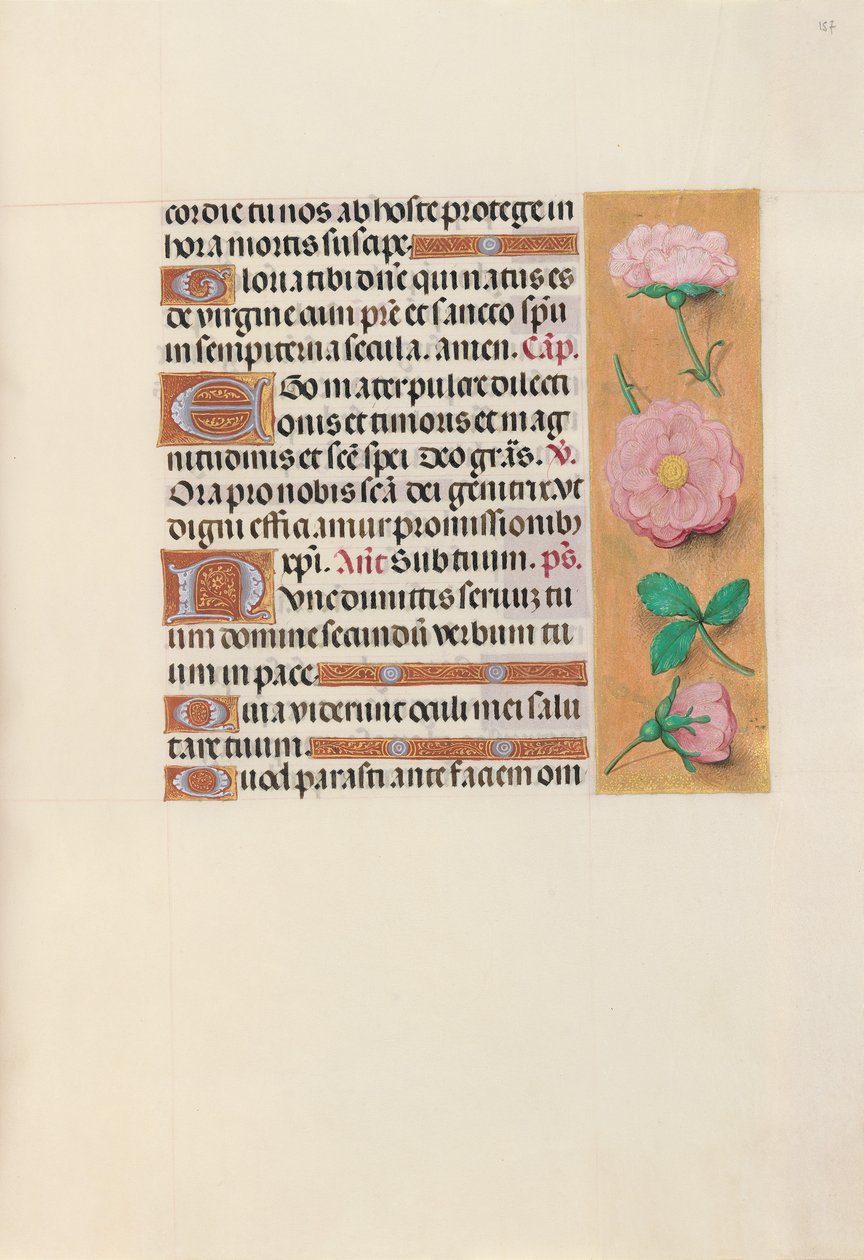 157
cordie tu nos ab hoste protege in
hora mortis suscipe.
Gloria tibi dñe qui natus es
de virgine cum prẽ et sancto spũ
in sempiterna secula. amen. Cãp.
Ego mater pulcre dilecti
onis et timoris et mag
nitudinis et scẽ spei Deo grãs. V̈.
Ora pro nobis scã dei genitrix. Vt
digni efficiamur promissionibꝰ
xp̃i. Añt Sub tuum. p̃s.
Nvnc dimittis seruuʒ tu
um domine secundũ verbum tu
um in pace.
Quia viderunt oculi mei salu
tare tuum.
Quod parasti ante faciem om